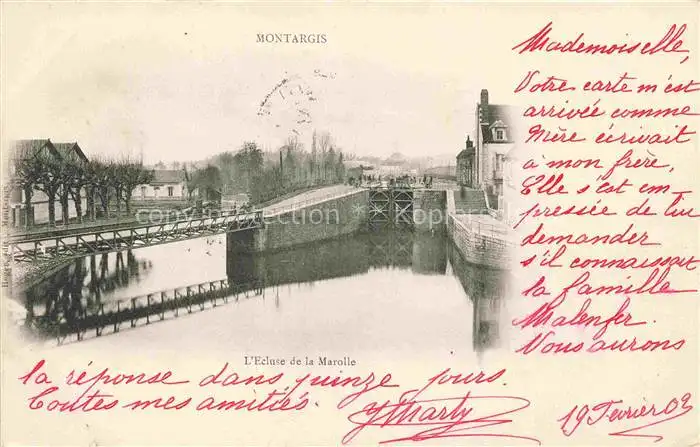 MONTARGIS
Mademoiselle,
Votre carte m'est
arrivée comme
Mère écrivait
à mon frère,
Elle s'est em-
pressée de lui
demander
s'il connaissait
la famille
Malenfer.
Vous aurons
la réponse dans quinze jours.
Toutes mes amitiés.
Y Marty
19 Février 03
L'Ecluse de la Marolle
copyright